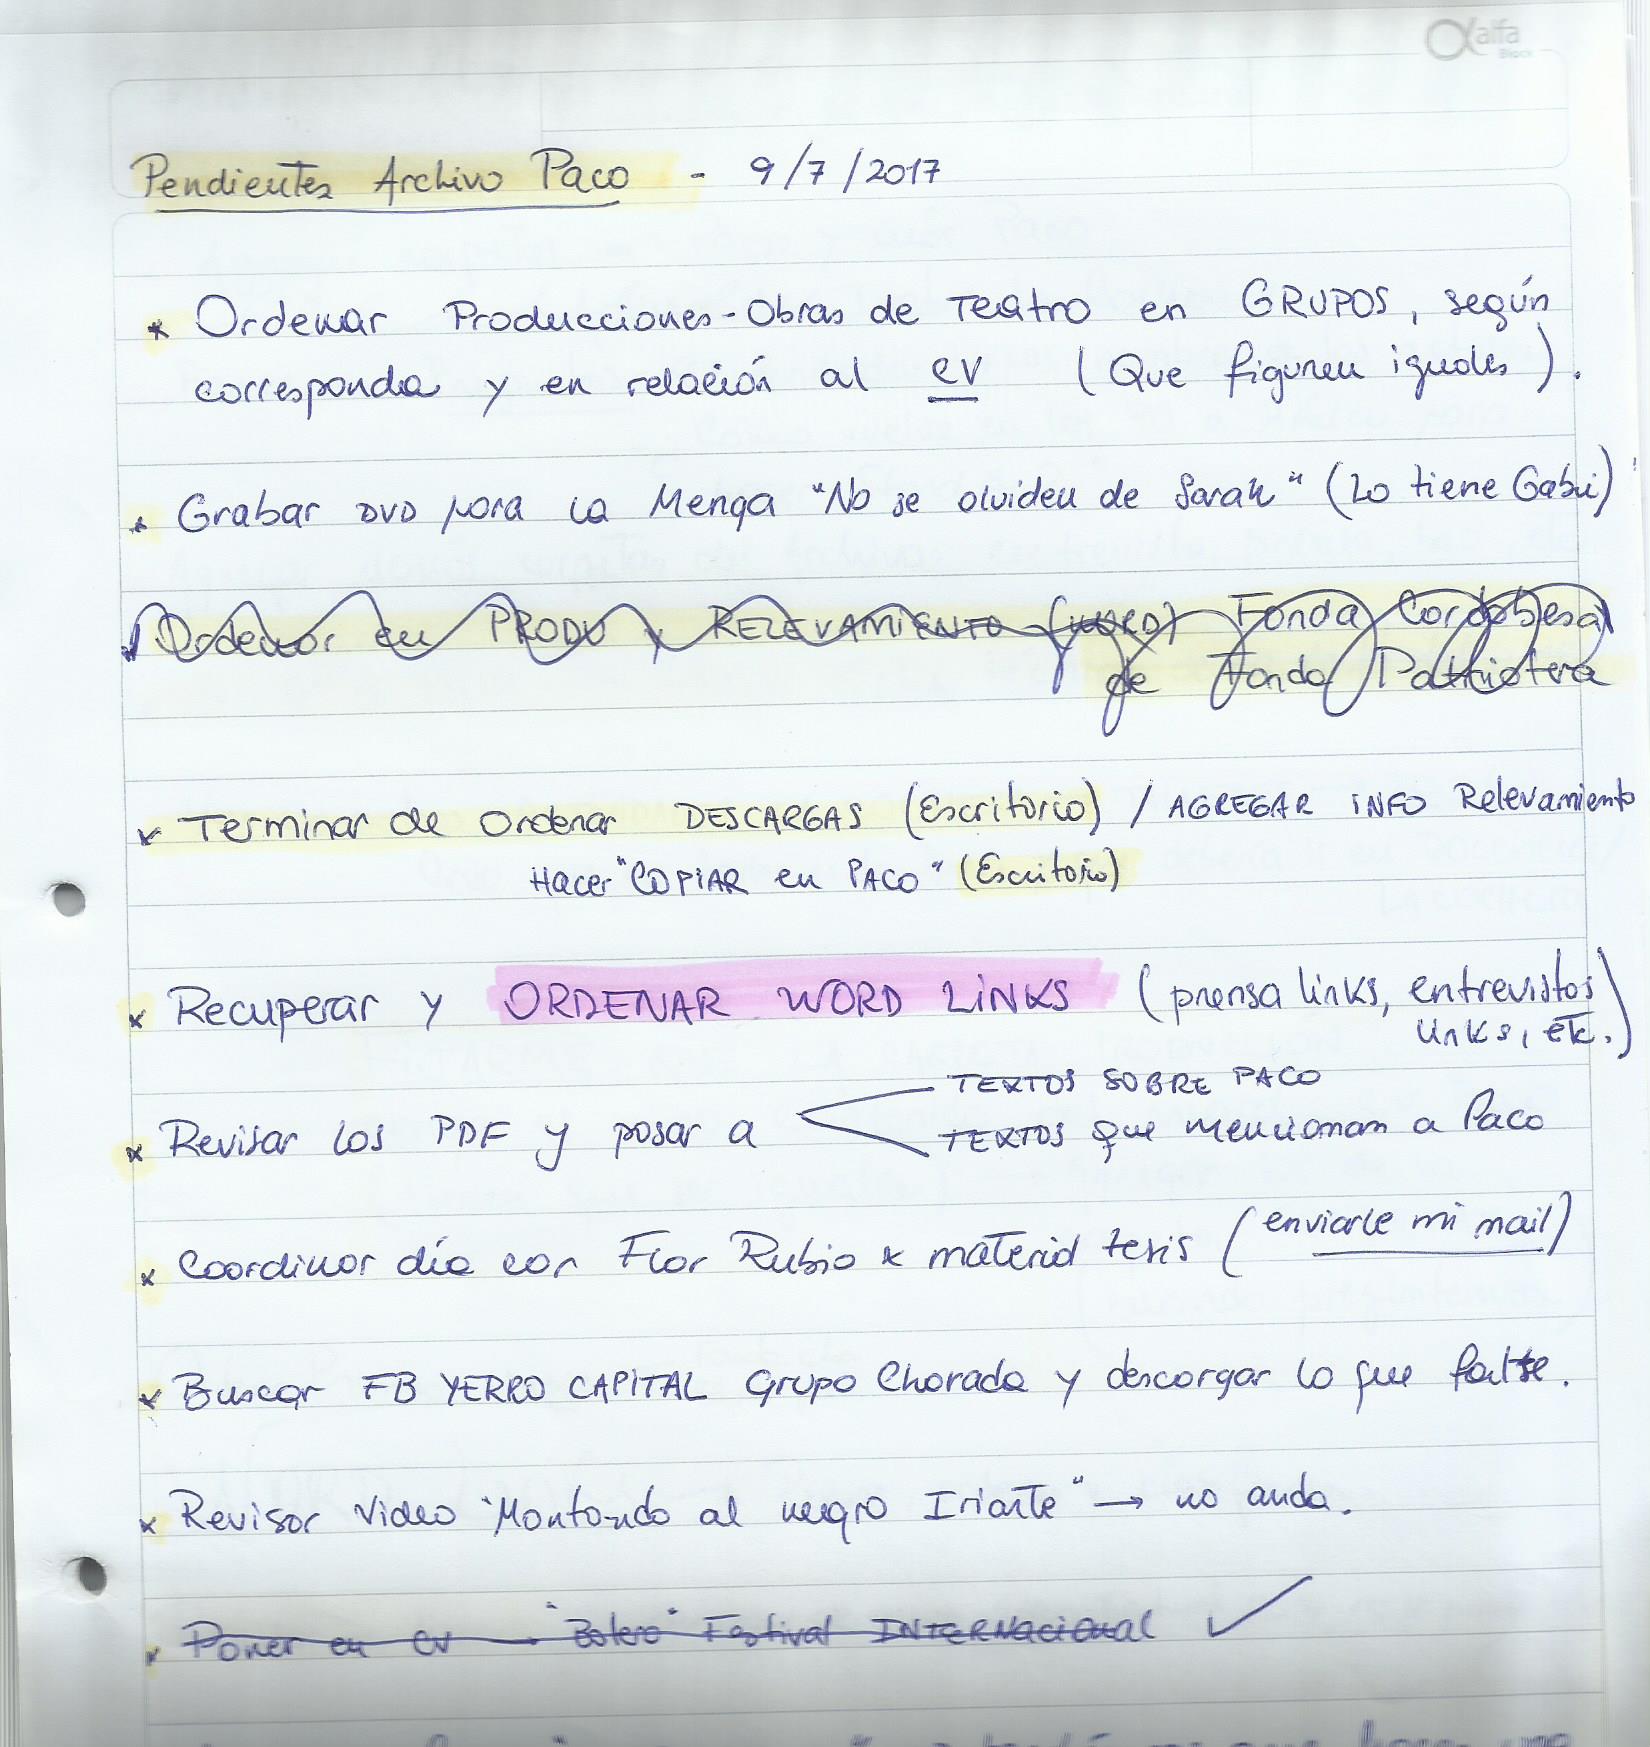 alfa
Block
Pendientes Archivo Paco - 9/7/2017
* Ordenar Producciones-Obras de Teatro en GRUPOS, según
corresponda y en relación al CV (Que figuren iguales).
* Grabar DVD para La Menga "No se olviden de Sarah" (Lo tiene Gabi)
* Ordenar en PRODU y RELEVAMIENTO (WORD) Fonda Cordobesa
de Fonda Patriotera
* Terminar de Ordenar DESCARGAS (Escritorio) / AGREGAR INFO Relevamiento
Hacer "COPIAR en PACO" (Escritorio)
* Recuperar y ORDENAR WORD LINKS (prensa links, entrevistas
links, etc.)
TEXTOS SOBRE PACO
* Revisar los PDF y pasar a
TEXTOS que mencionan a Paco
* Coordinar día con Flor Rubio x material tesis (enviarle mi mail)
* Buscar FB YERRO CAPITAL Grupo Chorada y descargar lo que falte.
* Revisar Video "Montando al negro Iriarte" → no anda.
* Poner en CV → "Bolero" Festival INTERNacional ✓